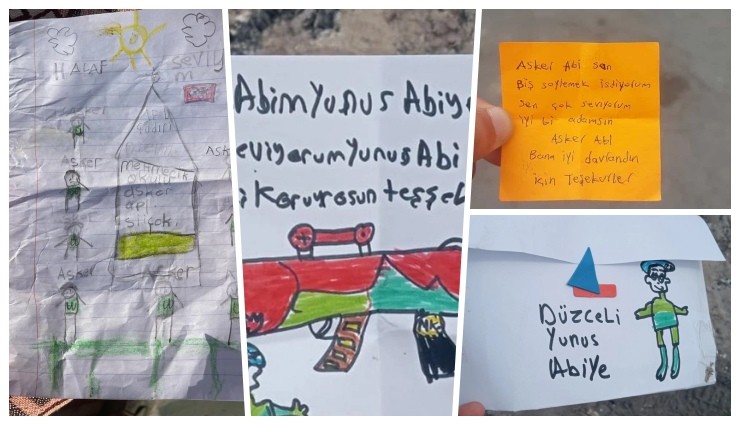 HALAF
seviy
m
Asker
mehmetcik
Asker
asker
Asker
Asker
Abim Yunus Abiy
eviyorum Yunus Abi
Koruyrosun teşşe
Asker Abi sen
Biş söylemek istiyorum
sen çok seviyorum
iyi bi adamsın
Asker Abi
Bana iyi davrandın
için Teşekuller
DÜZCELİ
Yunus
Abiye